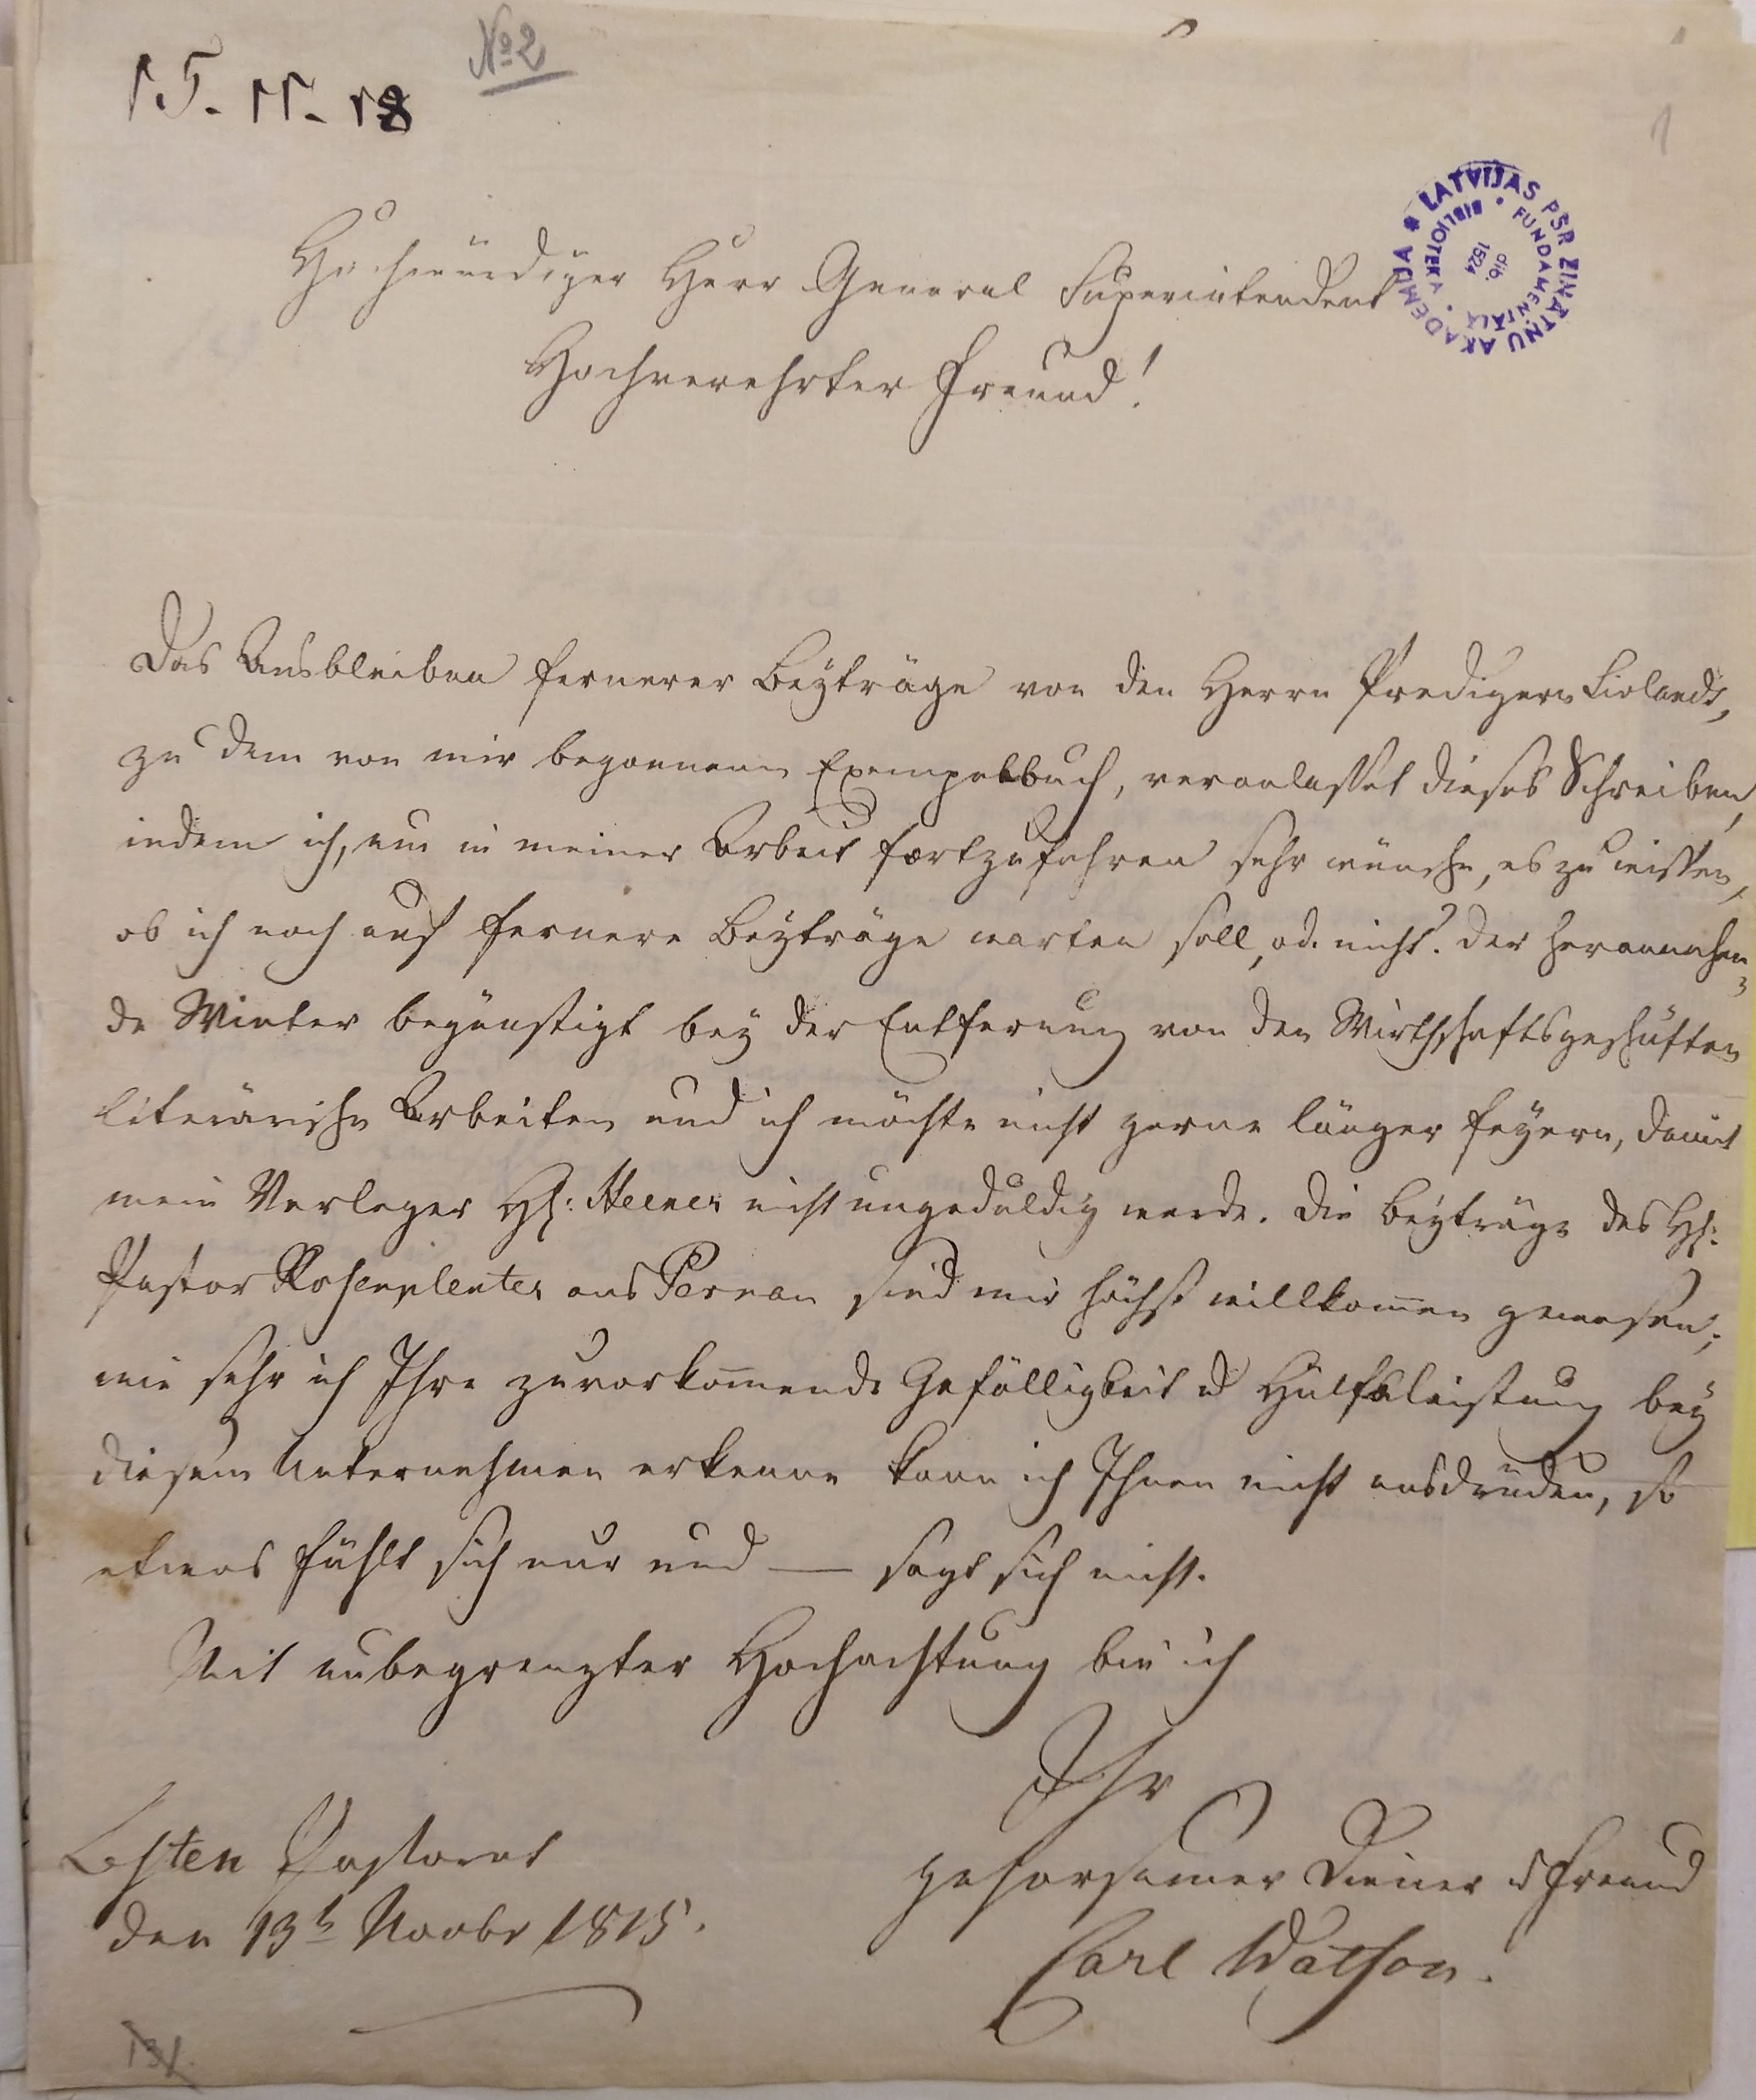 № 2
15. 11. 18
1
LATVIJAS PSR ZINĀTŅU AKADĒMIJA
FUNDAMENTĀLĀ BIBLIOTEKA
dib. 1524
Hochwürdiger Herr General Superintendent
Hochverehrter Freund!
Das Ausbleiben fernerer Beyträge von den Herrn Predigern Livlands,
zu dem von mir begonnenen Exempelbuch, veranlasset dieses Schreiben,
indem ich, um in meiner Arbeit fortzufahren sehr wünsche, es zu wissen,
ob ich noch auf fernere Beyträge warten soll, od. nicht? Der herannahen-
de Winter begünstigt bey der Entfernung von den Wirthschaftsgeschäften
literärische Arbeiten und ich möchte nicht gerne länger feyern, damit
mein Verleger HE: nicht ungeduldig werde. Die Beyträge des HE:
Pastor Rosenplenter aus Pernau sind mir höchst willkom̅en gewesen;
wie sehr ich Ihre zuvorkom̅ende Gefälligkeit u Hülfsleistung bey
diesem Unternehmen erkenne kann ich Ihnen nicht ausdrücken, so
etwas fühlt sich nur und — sagt sich nicht.
Mit unbegrenzter Hochachtung bin ich
Ihr
gehorsamer Diener u Freund
Carl Watson.
Lesten Pastorat
den 13t Novbr 1815.
131.